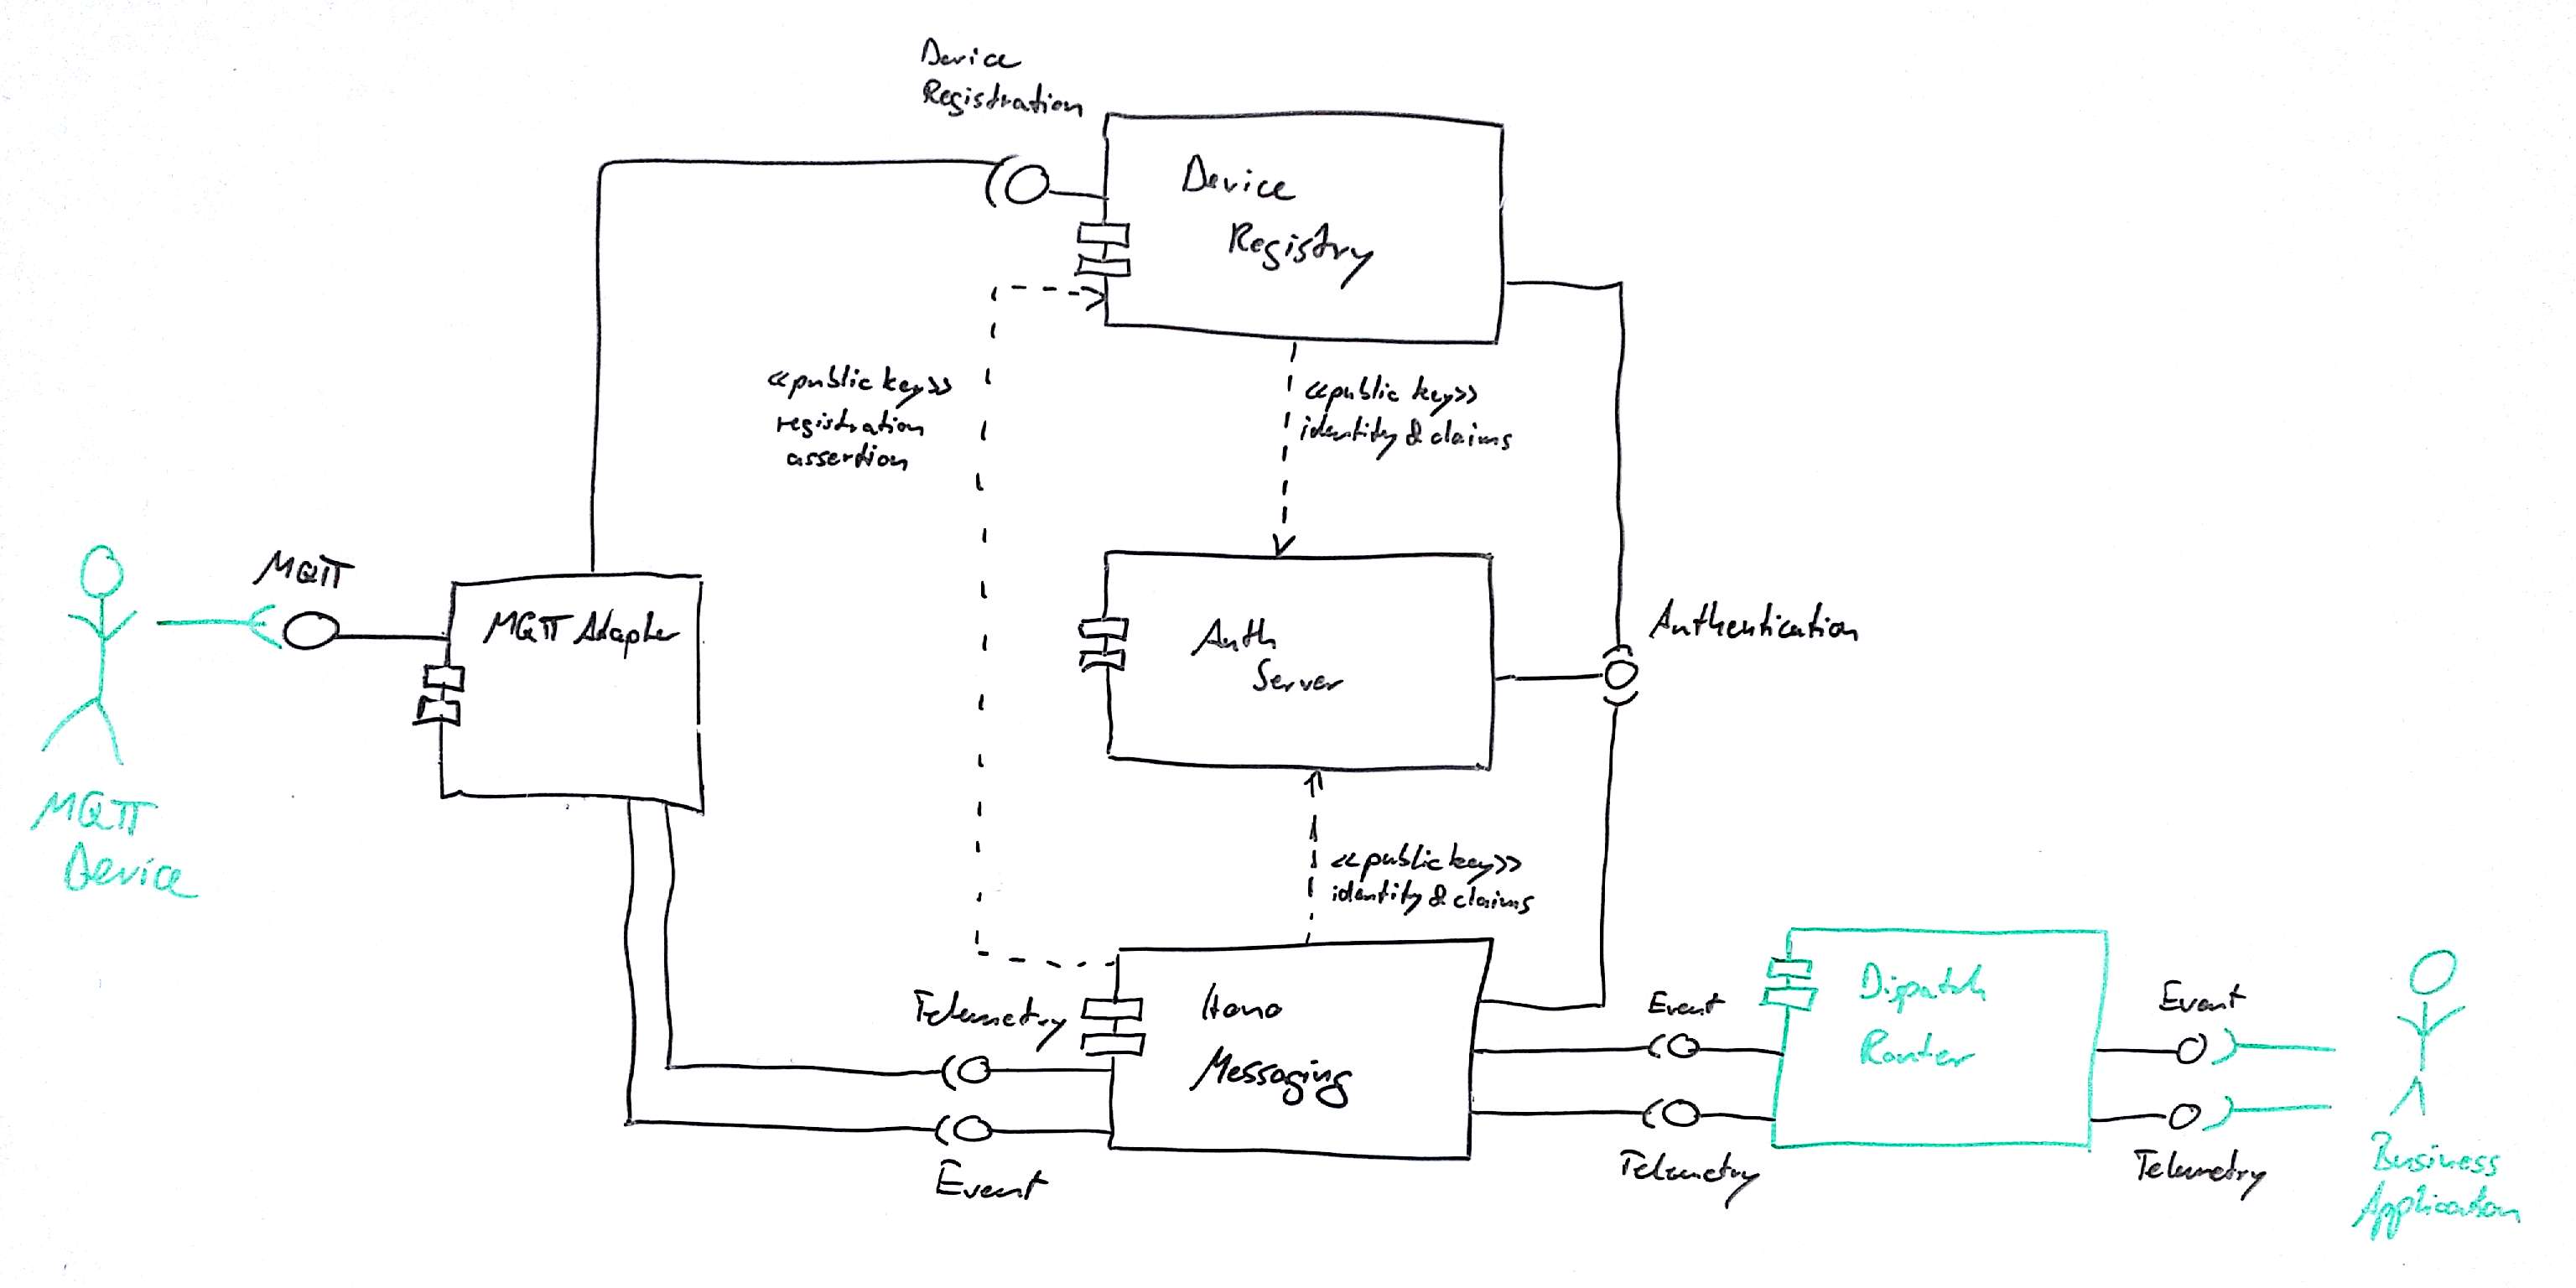 Device
Registration
Device
Registry
«public key»
registration
assertion
«public key»
identity & claims
MQTT
MQTT Adapter
Auth
Server
Authentication
MQTT
Device
«public key»
identity & claims
Telemetry
Hono
Messaging
Event
Event
Telemetry
Dispatch
Router
Event
Telemetry
Business
Application